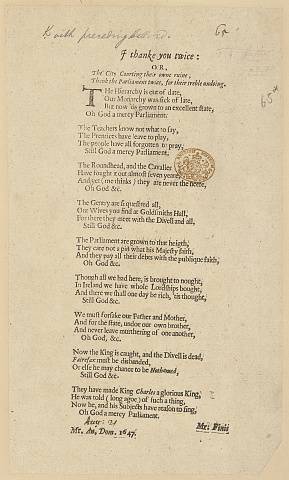 65
65*
I thanke you twice:
OR,
The City Courting their owne ruine,
Thank the Parliament twice, for their treble undoing.
THe Hierarchy is out of date,
Our Monarchy was sick of late,
But now 'tis grown to an excellent state;
Oh God a mercy Parliament.
The Teachers know not what to say,
The Prentices have leave to play,
The people have all forgotten to pray;
Still God a mercy, Parliament.
The Roundhead, and the Cavalier
Have fought it out almost seven yeare,
And yet (me thinks) they are never the neere,
Oh God &c.
The Gentry are sequestred all,
Our Wives you find at Goldsmiths Hall,
For there they meet with the Divell and all,
Still God &c.
The Parliament are grown to that heigth,
They care not a pin what his Majesty saith,
And they pay all their debts with the publique faith,
Oh God &c.
Though all we had here, is brought to nought,
In Ireland we have whole Lordships bought,
And there we shall one day be rich, 'tis thought,
Still God &c.
We must forsake our Father and Mother,
And for the state, undoe our own brother,
And never leave murthering of one another,
Oh God, &c.
Now the King is caught, and the Divell is dead,
Fairefax must be disbanded,
Or else he may chance to be Hothamed,
Still God &c.
They have made King Charles a glorious King,
He was told (long agoe) of such a thing,
Now he, and his Subjects have reason to sing,
Oh God a mercy Parliament.
Aug: 21
Mr. An, Dom. 1647.
Mr: Finis